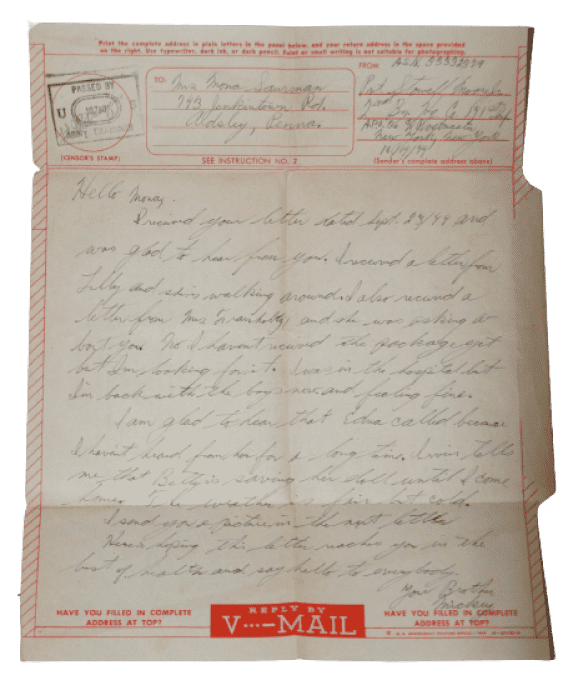 Print the complete address in plain letters in the panel below, and your return address in the space provided
on the right. Use typewriter, dark ink, or dark pencil. Faint or small writing is not suitable for photographing.
PASSED BY
U S
ARMY EXAMINER
(CENSOR'S STAMP)
TO:
Mrs Mona
793 Jenkintown Rd.
Penna.
SEE INSTRUCTION No. 2
FROM
ASN 33332979
Pvt
2nd Bn Hq Co 191st
A.P.O. Postmaster
New York, New York
(Sender's complete address above)
Hello
I received your letter dated Sept. 23/44 and
was glad to hear from you. I received a letter from
Lilly and she's walking around. I also received a
letter from Mrs and she was asking a
bout you. No I havent received the package yet
but I'm looking for it. I was in the hospital but
I'm back with the boys now and feeling fine.
I am glad to hear that Edna called because
I havent heard from her for a long time. tells
me that Betty is saving her doll until I come
home. The weather is fair but cold.
I send you a picture in the next letter
Here's hoping this letter reaches you in the
best of health and say hello to everybody.
Your Brother
Mickey
HAVE YOU FILLED IN COMPLETE
ADDRESS AT TOP?
REPLY BY
V···—MAIL
HAVE YOU FILLED IN COMPLETE
ADDRESS AT TOP?